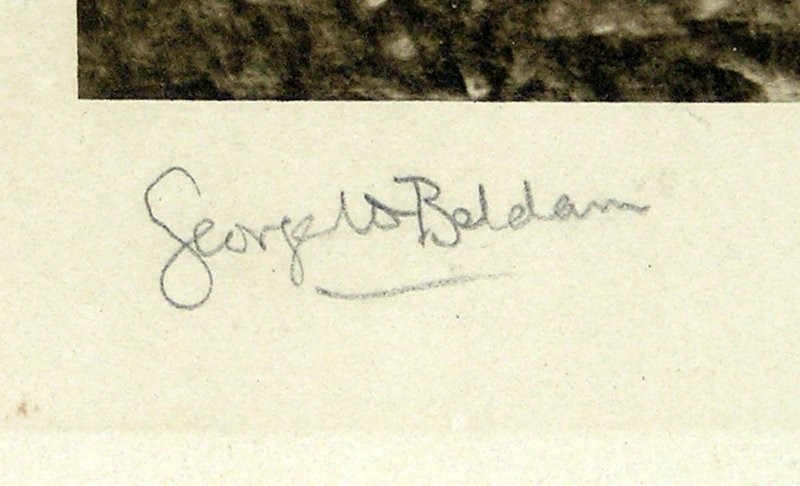 George W Beldam